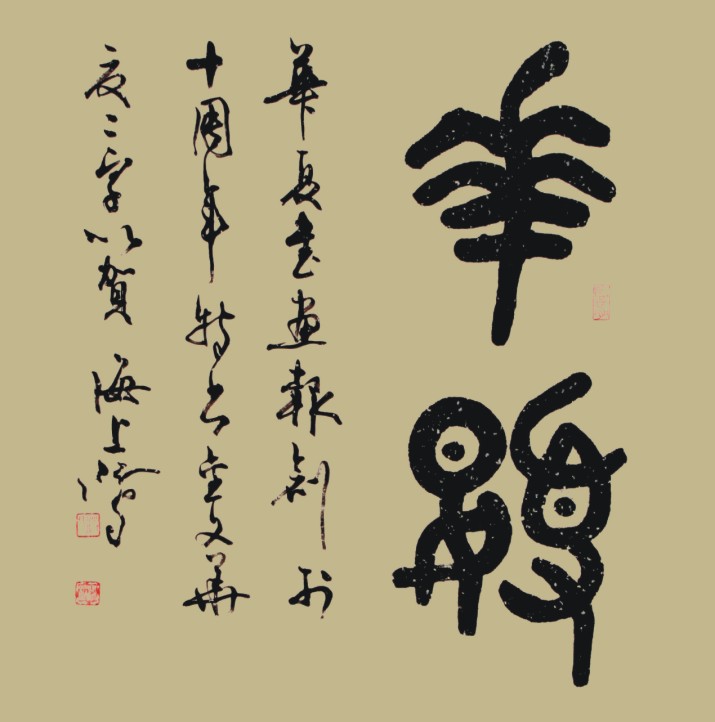 華夏
華夏書畫報創刊
十周年特书金文華
夏二字以賀 海上